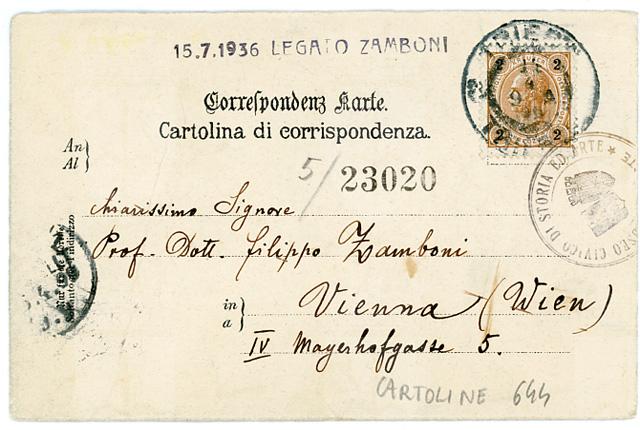 15.7.1936 LEGATO ZAMBONI
TRIEST
2 2
2 2
Correspondenz Karte.
Cartolina di corrispondenza.
An
Al
5/23020
CIVICO DI STORIA ED ARTE
Chiarissimo Signore
Prof. Dott. Filippo Zamboni
in
a
Vienna (Wien)
IV Mayerhofgasse 5.
CARTOLINE 644